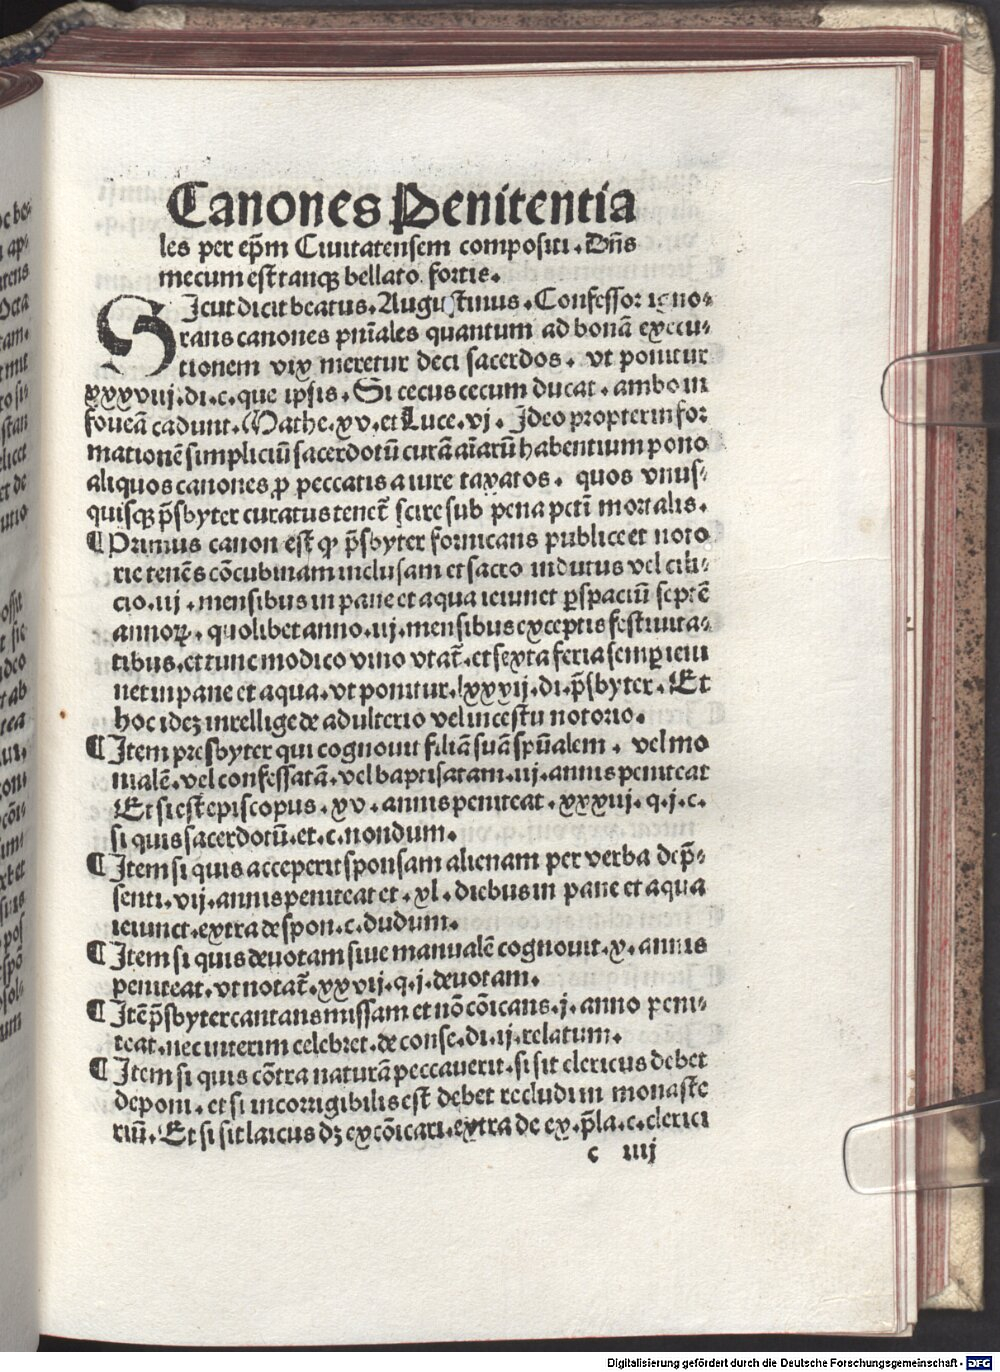 Canones Penitentia
les per ep̄m Ciuitatensem compositi. Dn̄s
mecum est tanqȝ bellato fortis.
SIcut dicit beatus. Augustinus. Confessor igno⸗
rans canones pn̄iales quantum ad bonā execu⸗
tionem vix meretur deci sacerdos. vt ponitur
xxxviij. di. c. que ipsis. Si cecus cecum ducat. ambo in
foueā cadunt. Mathe. xv. et Luce. vj. Ideo propter infor
mationē simpliciū sacerdotū curā aīarū habentium pono
aliquos canones ꝓ peccatis a iure taxatos. quos vnus⸗
quisqȝ p̄sbyter curatus tenet̄ scire sub pena petī mortalis.
¶ Primus canon est ꝙ p̄sbyter fornicans publice et noto
rie tenēs cōcubinam inclusam et sacco indutus vel cili⸗
cio. iij. mensibus in pane et aqua ieiunet ꝑ spaciū septē
annoꝝ. quolibet anno. iij. mensibus exceptis festiuita⸗
tibus. et tunc modico vino vtat̄. et sexta feria semꝑ ieiu
net in pane et aqua. vt ponitur. lxxxij. di. p̄sbyter. Et
hoc ideȝ intellige de adulterio vel incestu notorio.
¶ Item presbyter qui cognouit filiā suā spūalem. vel mo
nialē. vel confessatā. vel baptisatam. iij. annis peniteat
Et si est episcopus. xv. annis peniteat. xxxiij. q. j. c.
si quis sacerdotū. et. c. nondum.
¶ Item si quis acceperit sponsam alienam per verba de p̄⸗
senti. vij. annis peniteat et. xl. diebus in pane et aqua
ieiunet. extra de spon. c. dudum.
¶ Item si quis deuotam siue manualē cognouit. x. annis
peniteat. vt notat̄. xxvij. q. j. deuotam.
¶ Itē p̄sbyter cantans missam et nō cōicans. j. anno peni⸗
teat. nec interim celebret. de conse. di. ij. relatum.
¶ Item si quis cōtra naturā peccauerit. si sit clericus debet
deponi. et si incorrigibilis est debet recludi in monaste
riū. Et si sit laicus dȝ excōicari. extra de ex. p̄la. c. clerici
c iiij
Digitalisierung gefördert durch die Deutsche Forschungsgemeinschaft - DFG